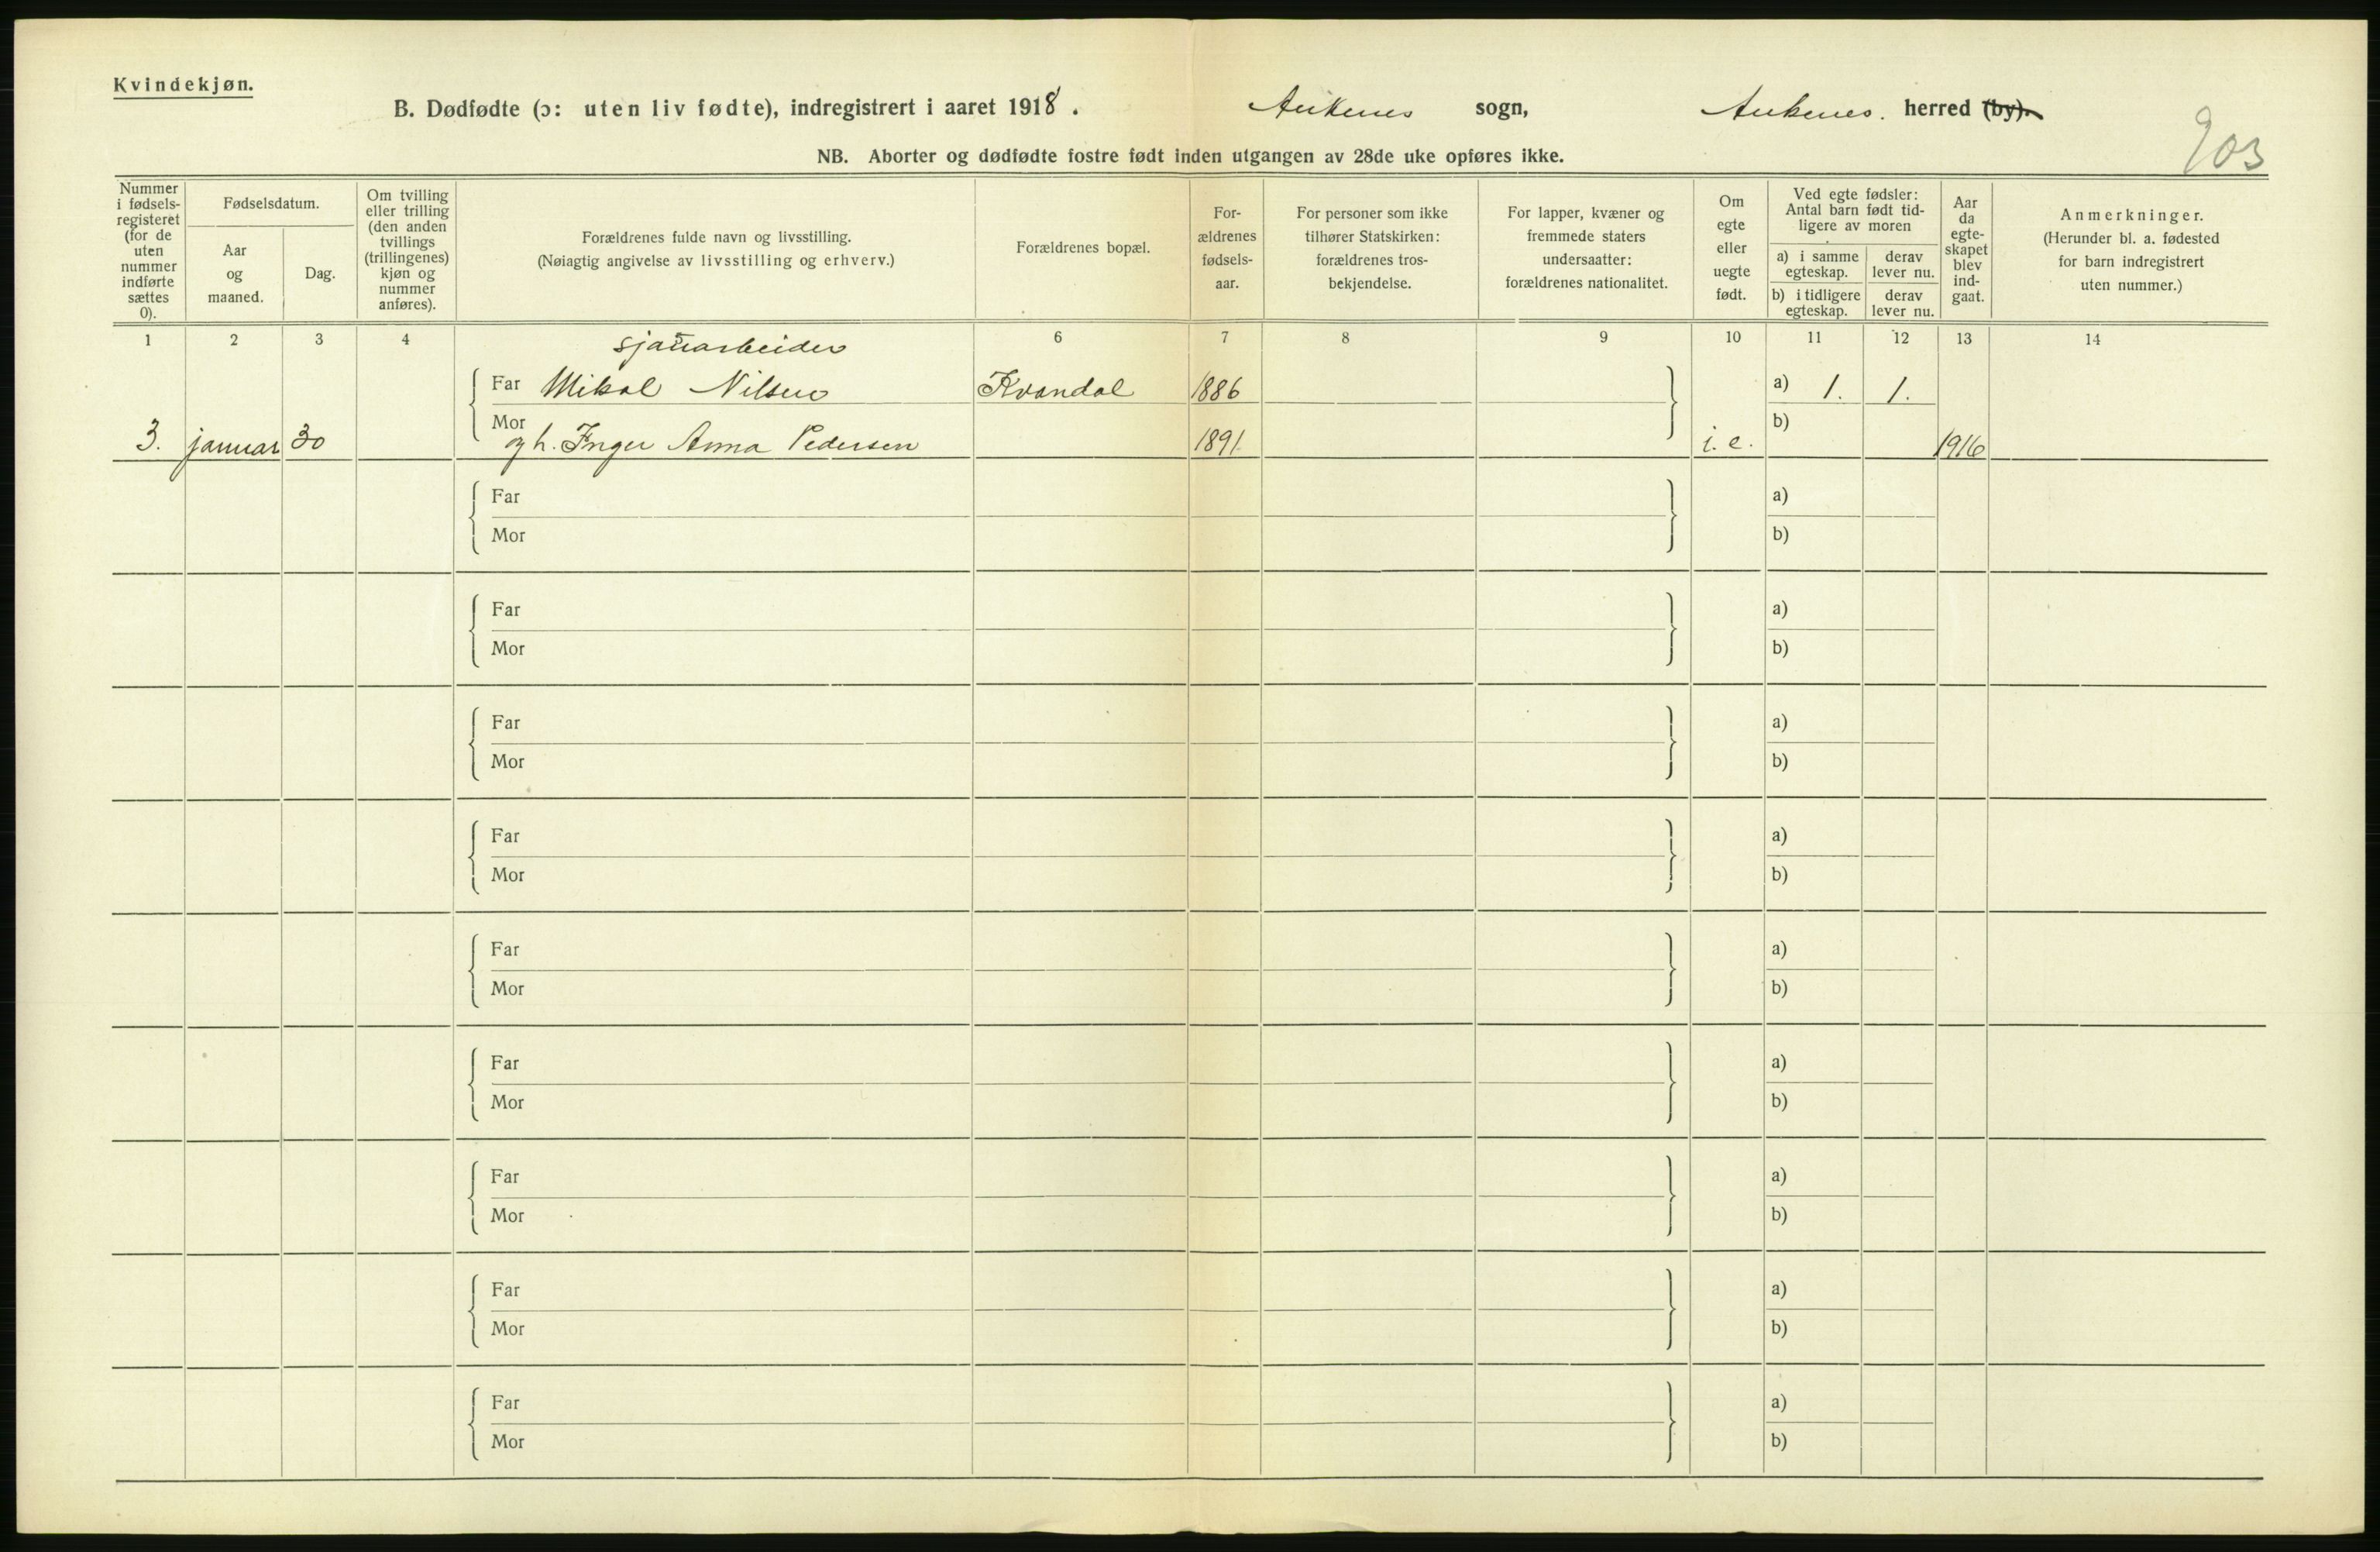 Kvindekjøn.
B. Dødfødte (ɔ: uten liv fødte), indregistrert i aaret 1918. Ankenes sogn, Ankenes. herred (by).
903
NB. Aborter og dødfødte fostre født inden utgangen av 28de uke opføres ikke.
Nummer i fødsels-registeret (for de uten nummer indførte sættes 0).
Fødselsdatum.
Aar og maaned.
Dag.
Om tvilling eller trilling (den anden tvillings (trillingenes) kjøn og nummer anføres).
Forældrenes fulde navn og livsstilling.
(Nøiagtig angivelse av livsstilling og erhverv.)
Forældrenes bopæl.
For-ældrenes fødsels-aar.
For personer som ikke tilhører Statskirken: forældrenes tros-bekjendelse.
For lapper, kvæner og fremmede staters undersaatter: forældrenes nationalitet.
Om egte eller uegte født.
Ved egte fødsler: Antal barn født tid-ligere av moren
a) i samme egteskap.
derav lever nu.
b) i tidligere egteskap.
derav lever nu.
Aar da egte-skapet blev ind-gaat.
Anmerkninger.
(Herunder bl. a. fødested for barn indregistrert uten nummer.)
1 2 3 4 6 7 8 9 10 11 12 13 14
sjauarbeider
Far Mikal Nilsen Kvandal 1886 a) 1. 1.
Mor b)
3. januar 30 og h. Inger Anna Pedersen 1891. i. e. 1916
Far a)
Mor b)
Far a)
Mor b)
Far a)
Mor b)
Far a)
Mor b)
Far a)
Mor b)
Far a)
Mor b)
Far a)
Mor b)
Far a)
Mor b)
Far a)
Mor b)